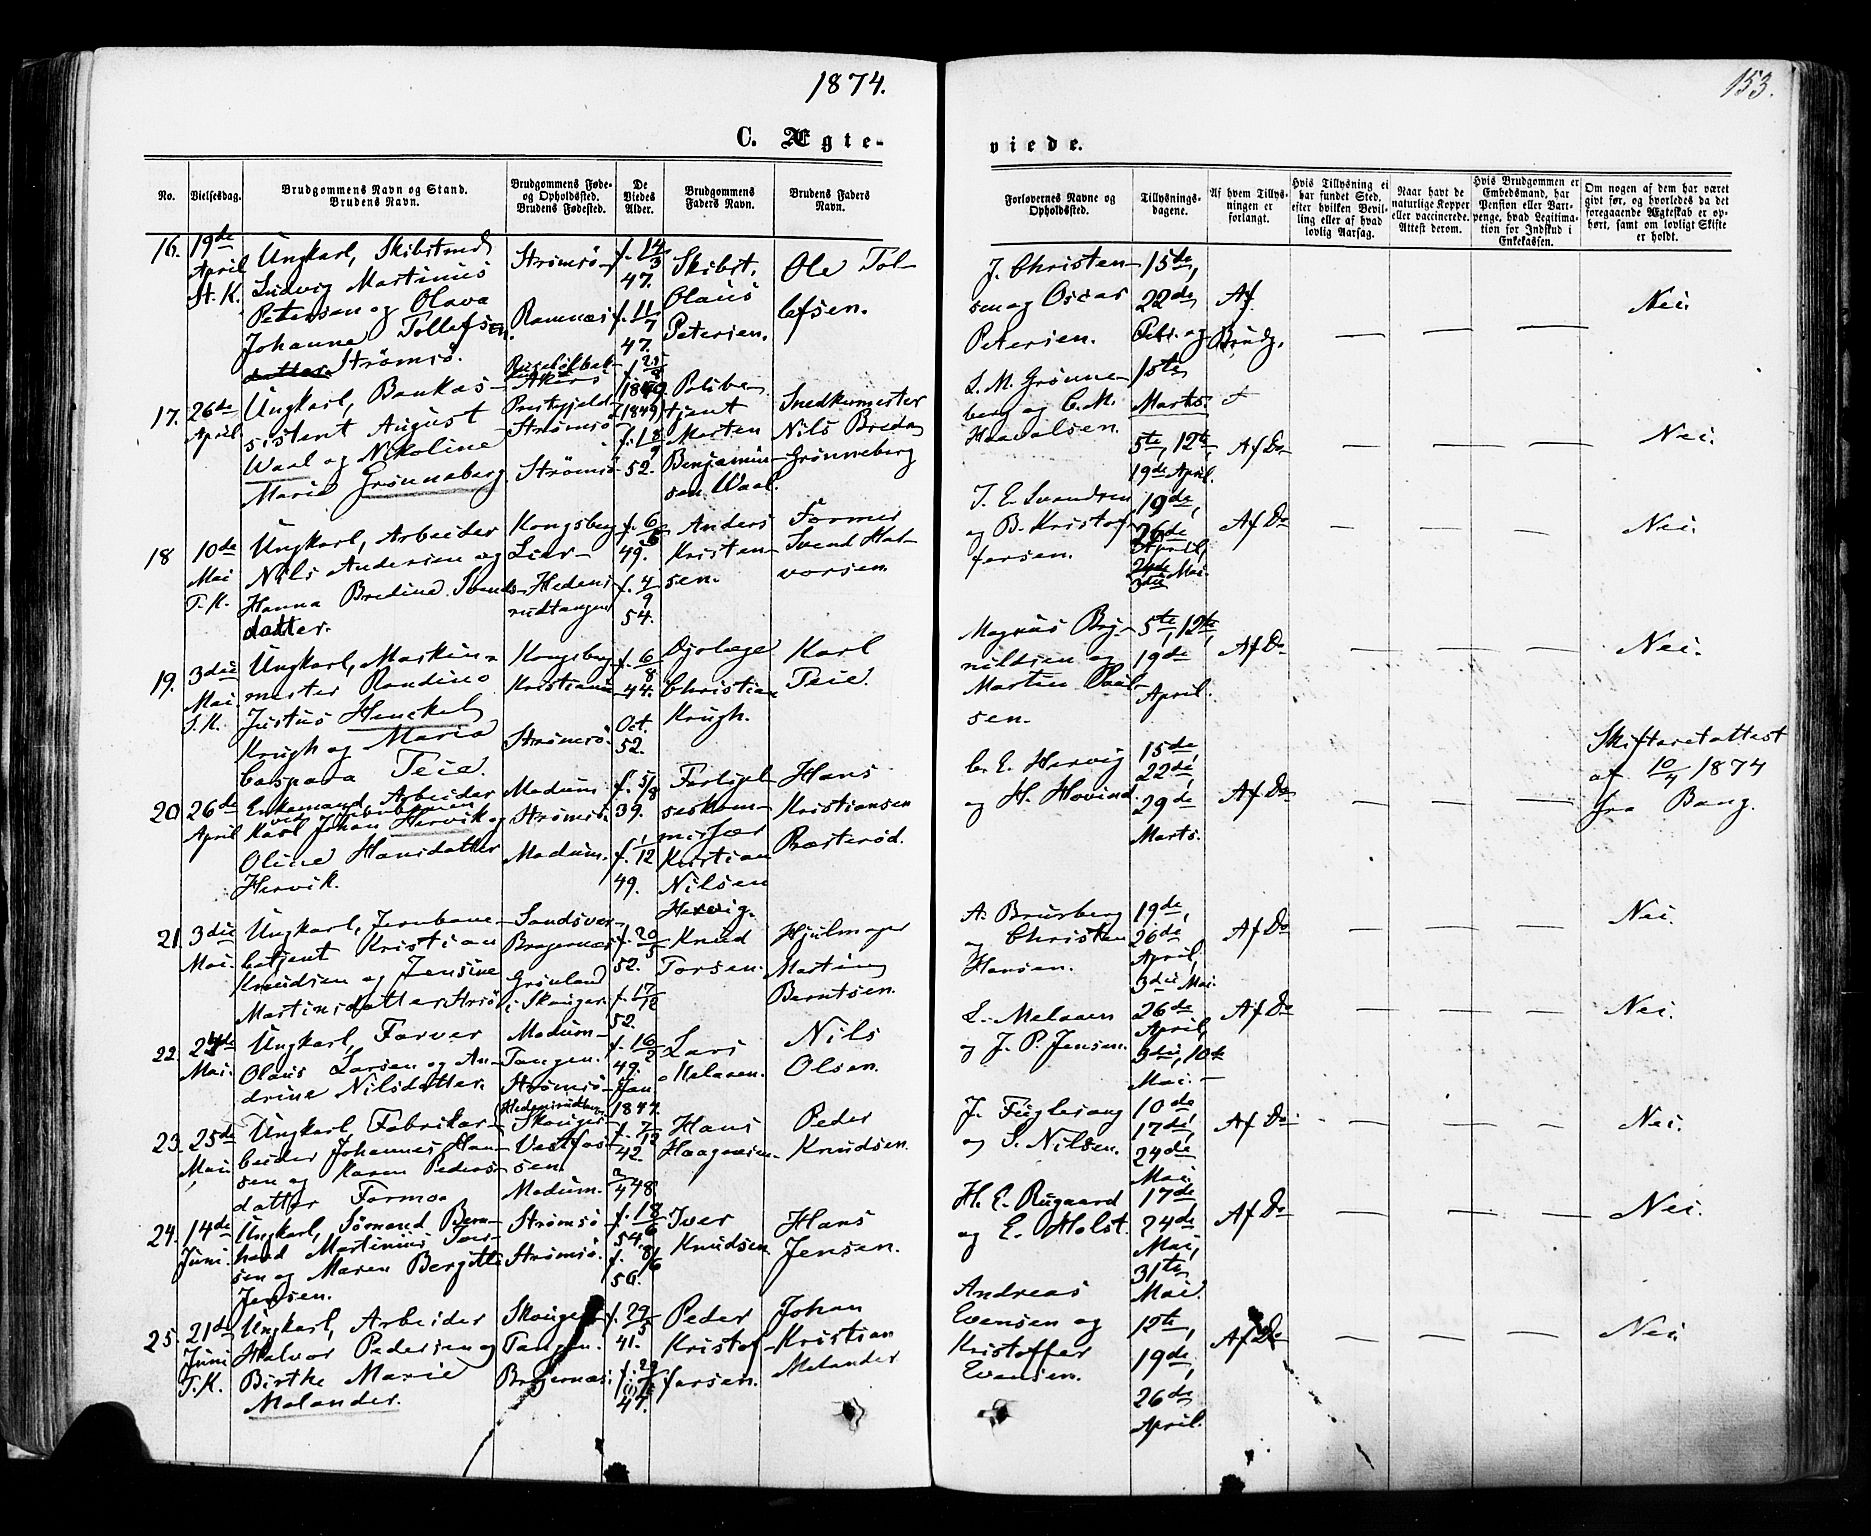 1874.
153.
C. Ægte-
viede.
No.
Vielsesdag.
Brudgommens Navn og Stand.
Brudens Navn.
Brudgommens Føde-
og Opholdssted.
Brudens Fødested.
De
Viedes
Alder.
Brudgommens
Faders Navn.
Brudens Faders
Navn.
Forlovernes Navne og
Opholdssted.
Tillysnings-
dagene.
Af hvem Tillys-
ningen er
forlangt.
Hvis Tillysning ei
har fundet Sted,
efter hvilken Bevil-
ling eller af hvad
lovlig Aarsag.
Naar havt de
naturlige Kopper
eller vaccinerede.
Attest derom.
Hvis Brudgommen er
Embedsmand, har
Pension eller Vart-
penge, hvad Legitima-
tion for Indskud i
Enkekassen.
Om nogen af dem har været
givt før, og hvorledes da det
foregaaende Ægteskab er op-
hørt, samt om lovligt Skifte
er holdt.
16.
19de
April
St. K.
Ungkarl, Skibstmd
Ludvig Martinius
Petersen og Olava
Johanne Tollefsen
datter Strømsø.
Strømsø
Ramnæs
f. 14/3
47.
f. 11/7
47.
Skibst.
Olaus
Petersen.
Ole Tol-
lefsen.
J. Christen-
sen og Oscar
Petersen.
15de,
22de
Febr. og
1ste
Marts.
Af
Brudg.
Nei.
17.
26de
April.
Ungkarl, Bankas-
sistent August
Waal og Nikoline
Marie Grønneberg.
Akers
Prestegjeld
Strømsø
Strømsø
(1849)
f. 18/9
52.
Politbe-
tjent
Morten
Benjamin-
sen Waal.
Snedkermester
Nils Breda
Grønneberg
L. M. Grønne-
berg og C. M.
Haavalsen.
5te, 12te,
19de April.
Af Do
Nei.
18
10de
Mai
T. K.
Ungkarl, Arbeider
Nils Andersen og
Hanna Bredine Svends-
datter.
Kongsberg
Lier-
Hedens-
rudtangen
f. 6/6
49.
f. 4/9
54.
Anders
Kristen-
sen.
Former
Svend Hal-
vorsen.
J. E. Svendsen
og B. Kristof-
fersen.
19de,
26de
April,
3die Mai.
Af Do
Nei.
19.
3die
Mai.
S. K.
Ungkarl, Maskin-
mester Randino
Justus Henckel
Krugh og Maria
Caspara Teie.
Kongsberg
Kristiania
Strømsø.
f. 6/8
44.
Oct.
52.
Christian
Krugh.
Karl
Teie.
Magnus Bry-
nildsen og
Martin Paul-
sen.
5te, 12te,
19de
April.
Af Do
Nei.
20
26de
April
Enkemand, Arbeider
Karl Johan Hervik og
Oline Hansdatter
Hervik.
Modum
Strømsø.
Modum.
f. 5/8
39.
f. 1/12
49.
Forligel-
seskom-
missær
Kristian
Nilsen
Hervig.
Hans
Kristiansen
Præsterød.
C. E. Hervig
og H. Hovind.
15de
22de,
29de
Marts.
Af Do
Skifteretattest
af 10/4 1874
fra Bang.
21.
3die
Mai.
Ungkarl, Jernbane-
betjent Kristian
Knudsen og Jensine
Martinsdatter Strømsø
Sandsvær
Bragernæs
Grønland
i Skouger.
f. 20/5
52.
f. 17/12
52.
Knud
Torsen.
Hjulmager
Martin
Berntsen.
A. Brusberg
og Christen
Hansen.
19de,
26de
April,
3die Mai.
Af Do
Nei.
22.
24de
Mai.
Ungkarl, Farver
Olaus Larsen og An-
drine Nilsdatter.
Modum-
Tangen.
Strømsø-
f. 16/2
49.
Jan
1847.
Lars
Melaaen.
Nils
Olsen.
L. Melaaen
og J. P. Jensen.
26de
April,
3die, 10de
Mai.
Af Do
Nei.
23.
25de
Mai.
Ungkarl Fabrikar-
beider Johannes Han-
sen og Karen Peders-
datter Formoe
Skouger
Vestfos-
sen.
Modum.
f. 7/12
42.
2/4 48.
Hans
Haagensen.
Peder
Knudsen.
J. Fuglesang
og S. Nilsen.
10de
17de,
24de
Mai.
Af Do
Nei.
24.
14de
Juni.
Ungkarl, Sømand Bern-
hard Martinius Iver-
sen og Maren Bergitte
Jensen.
Strømsø
Strømsø.
f. 18/6
54.
f. 8/6
50.
Iver
Knudsen.
Hans
Jensen.
H. E. Rugaard
og E. Holst.
17de
24de
Mai,
31te
Mai.
Af Do
Nei.
25.
21de
Juni
T. K.
Ungkarl, Arbeider
Halvor Pedersen og
Birthe Marie
Melander.
Skouger
Tangen.
Bragernæs.
f. 29/5
41.
47.
Peder
Kristof-
fersen.
Johan
Kristian
Melander
Andreas
Evensen og
Kristoffer
Evensen.
12te,
19de,
26de
April.
Af Do
Nei.